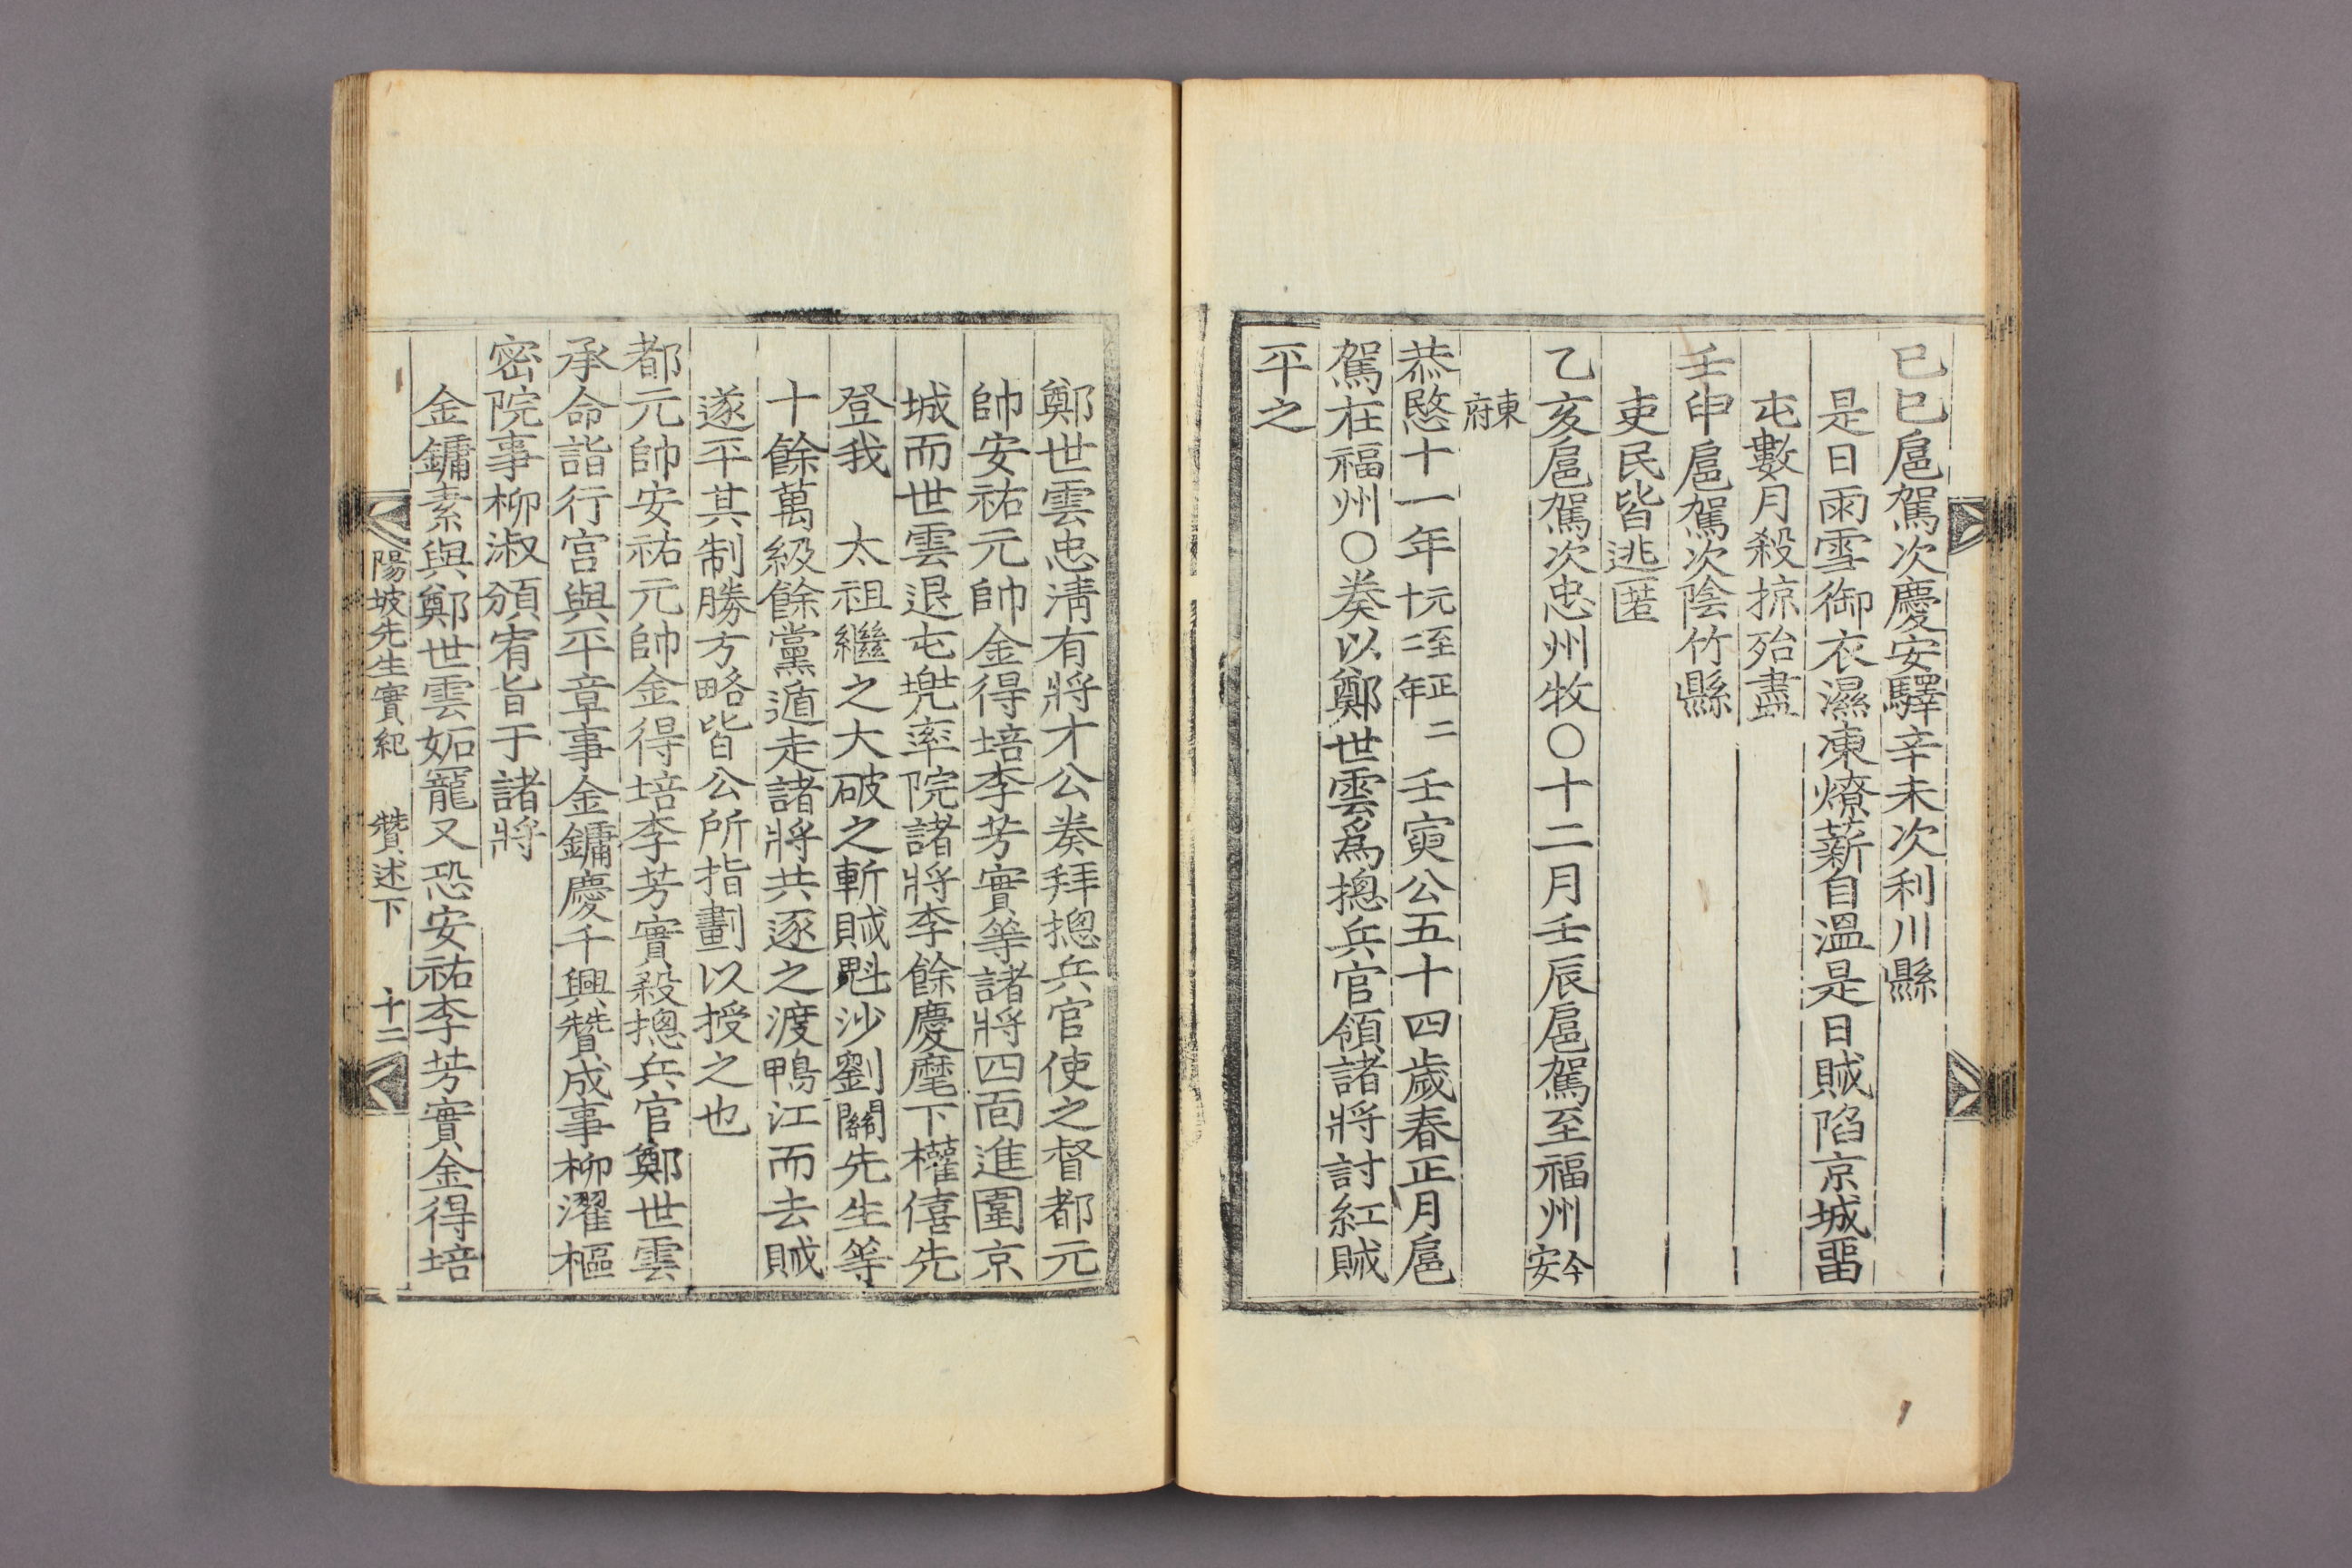 己巳扈駕次慶安驛辛未次利川縣
是日雨雪御衣濕凍燎薪自溫是日賊陷京城畱
屯數月殺掠殆盡
壬申扈駕次陰竹縣
吏民皆逃匿
乙亥扈駕次忠州牧○十二月壬辰扈駕至福州今安
東府
恭愍十一年元至正二十二年壬寅公五十四歲春正月扈
駕在福州○奏以鄭世雲爲摠兵官領諸將討紅賊
平之
鄭世雲忠淸有將才公奏拜摠兵官使之督都元
帥安祐元帥金得培李芳實等諸將四面進圍京
城而世雲退屯兠率院諸將李餘慶麾下權僖先
登我 太祖繼之大破之斬賊魁沙劉關先生等
十餘萬級餘黨遁走諸將共逐之渡鴨江而去賊
遂平其制勝方略皆公所指劃以授之也
都元帥安祐元帥金得培李芳實殺摠兵官鄭世雲
承命詣行宮與平章事金鏞慶千興贊成事柳濯樞
密院事柳淑頒宥旨于諸將
金鏞素與鄭世雲妬寵又恐安祐李芳實金得培
陽坡先生實紀 贊述下 十二